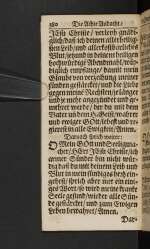 180 Die Achte Andacht/
JEsu Christe/ verleyh gnädig-
lich/ daß ich deinen allerheilig-
sten Leib/ und allerkostbarlichstes
Blut/ jetzund in deinem heiligen
hochwürdige Abendmahl/ wür-
diglich empfange/ damit mein
Sünde von verzeihung meiner
sünden gestärcket/ und die Liebe
meines Nechsten je länger
je mehr angezündet und ge-
mehret werde/ der du mit dem
Vater in dem H. Geiste/ wahrer
und ewiger GOtt/ lebest und re-
gierest in alle Ewigkeit/ Amen.
Darnach sprich weiter:
O Mein GOtt und Seeligma-
cher/ HErr JEsu Christ/ ich
armer Sünder bin nicht wür-
dig/ daß du mit deinem Leib und
Blut in mein sündiges hertz ein-
gehest/ sprich aber nur ein eini-
ges Wort/ so wird meine kranck
Seele gesund/ wider alle Sün-
de gestärcket/ und zum Ewigen
Leben bewahret/ Amen.
Dar-